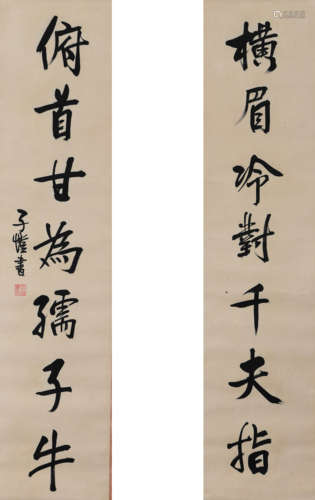 橫眉冷對千夫指
俯首甘為孺子牛
子愷書